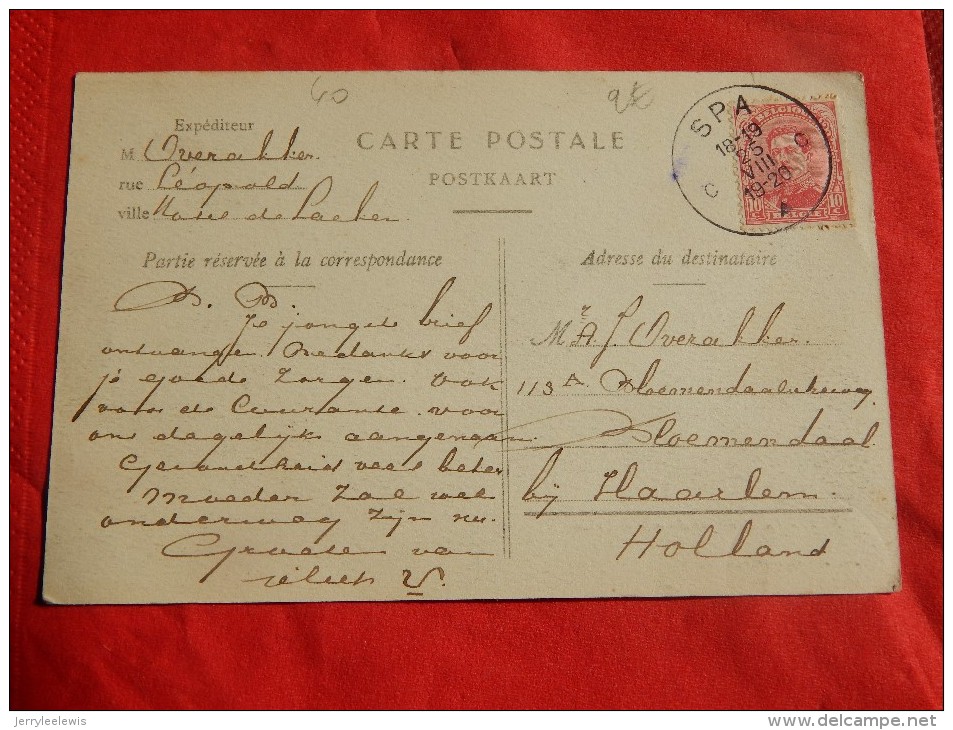 60
2€
Expéditeur
M Overakker.
rue Léopold
ville
CARTE POSTALE
POSTKAART
SPA
18-19
25
VIII
19-20
C C
A
BELGIQUE
10 C 10 C
BELGIE
Partie réservée à la correspondance
Je jongste brief
ontvangen. Bedankt voor
je goede zorgen. Ook
voor de Courante voor
ons dagelijks aangenaam
Gezondheid veel beter
Moeder zal wel
onderweg zijn nu.
Groeten van
Adresse du destinataire
Mr A. J. Overakker.
113A. Bloemendaalscheweg
Bloemendaal
bij Haarlem.
Holland
jerryleelewis
www.delcampe.net